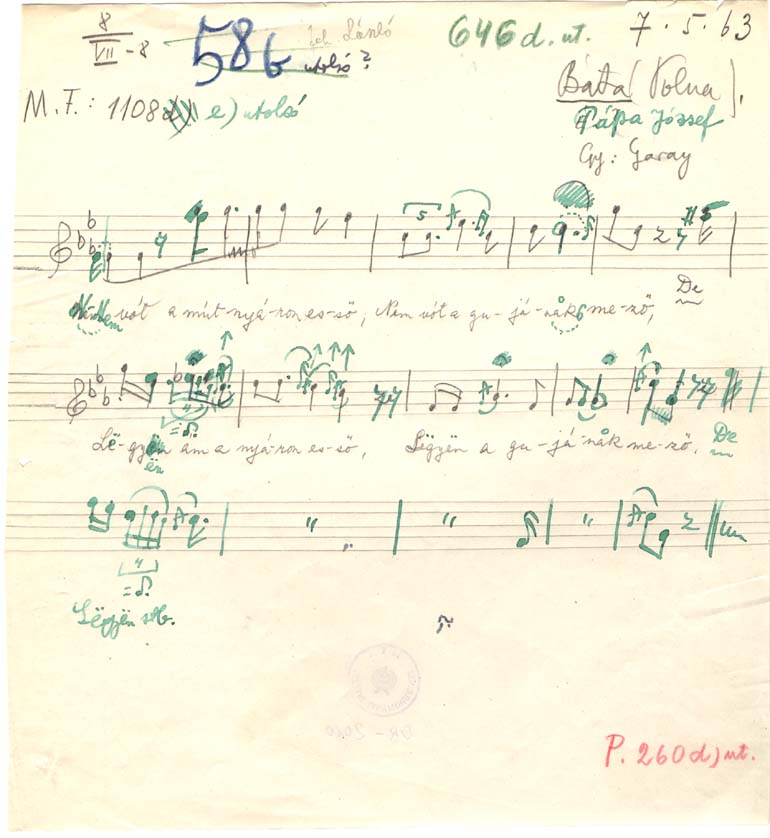 8
VII - 8
586
László
utolsó ?
646 d. ut.
7. 5. 63
M. F. : 1108 e) utolsó
Báta Tolna).
Pápa József
Gy: Garay
Nem vót a mút-nyá-ron es-ső, Nem vót a gu-já-nåk me-ző, De
Lë-gyën ám a nyá-ron es-ső, Lëgyën a gu-já-nåk me-ző. De
ën
Lëgyën stb.
P. 260 d) ut.